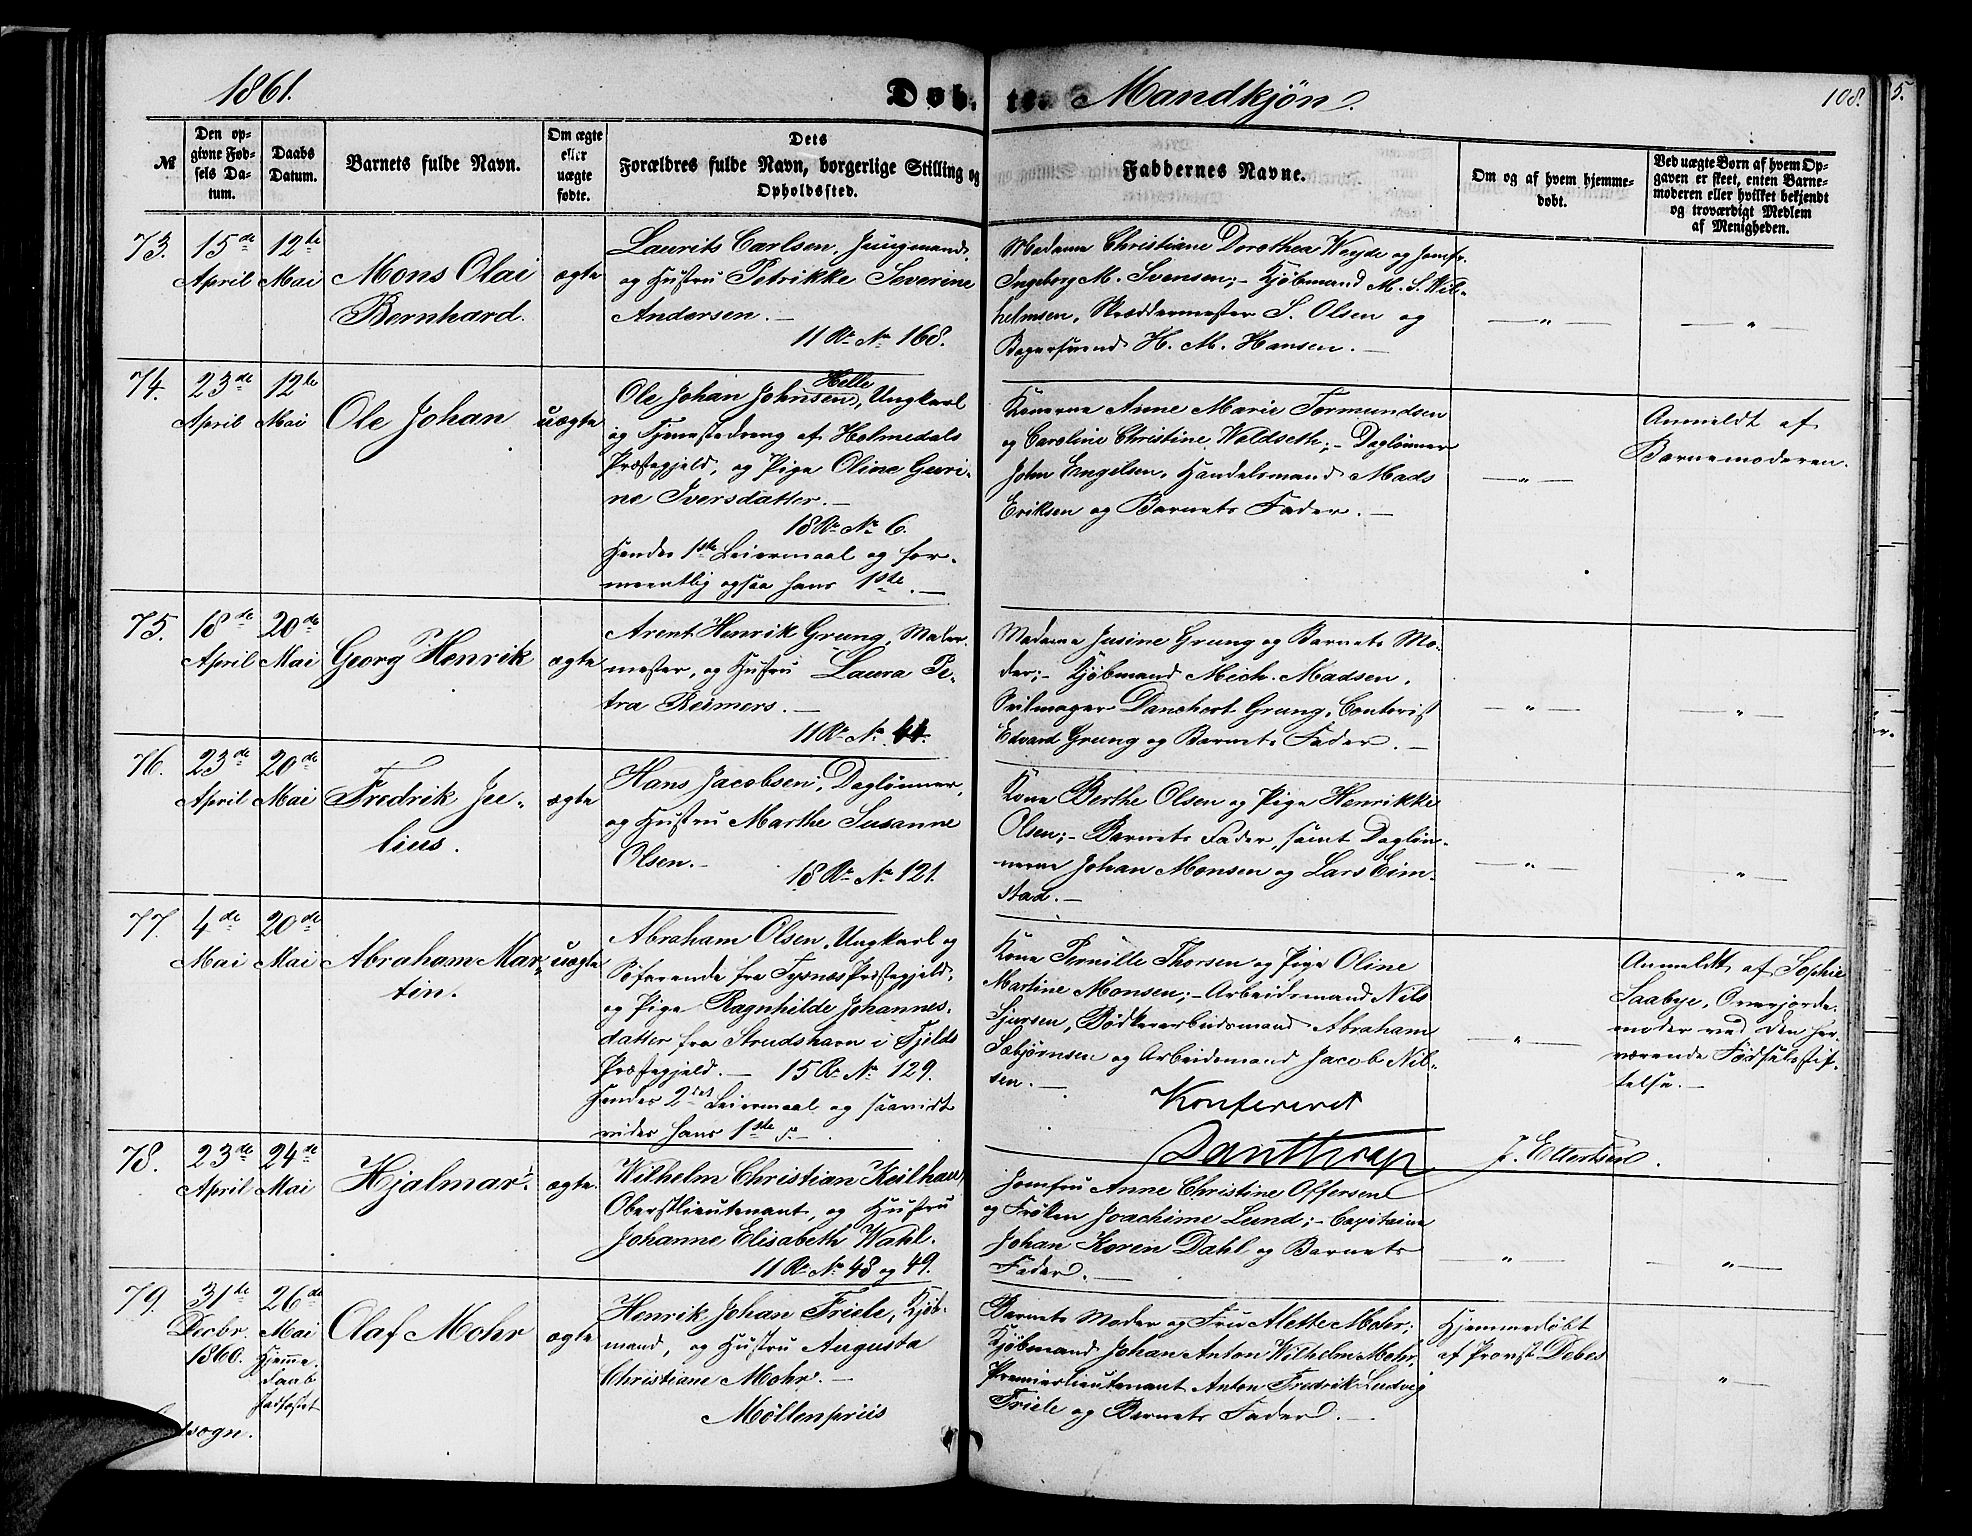 1861.
Døbte Mandkjøn.
108.
5.
№
Den op-
givne Fød-
sels Da-
tum.
Daabs
Datum.
Barnets fulde Navn.
Om ægte
eller
uægte
fødte.
Dets
Forældres fulde Navn, borgerlige Stilling og
Opholdssted.
Faddernes Navne.
Om og af hvem hjemme-
døbt.
Ved uægte Børn af hvem Op-
gaven er skeet, enten Barne-
moderen eller hvilket bekjendt
og troværdigt Medlem
af Menigheden.
73.
15de
April
12te
Mai
Mons Olai
Bernhard.
ægte
Laurits Carlsen, Jungmand,
og Hustru Petrikke Severine
Andersen. —
11 R. № 168.
Madame Christiane Dorothea Weyde og Jomfr.
Ingeborg M. Svensen; - Kjøbmand M. S. Wil-
helmsen, Skræddermester S. Olsen og
Bagersvend H. M. Hansen. —
— " —
— " —
74.
23de
April
12te
Mai
Ole Johan
uægte
Helle
Ole Johan Johnsen, Ungkarl
og Tjenestedreng af Holmedals
Præstegjeld, og Pige Oline Guri-
ne Iversdatter. —
18 R. № 6.
Hendes 1ste Leiermaal og for-
meentlig ogsaa hans 1ste. —
Konerne Anne Marie Tormundsen
og Caroline Christine Waldseth; - Daglønner
John Engelsen, Handelsmand Mads
Eriksen og Barnets Fader. —
— " —
Anmeldt af
Barnemoderen.
75.
18de
April
20de
Mai
Georg Henrik
ægte
Arent Henrik Grung, Maler-
mester, og Hustru Laura Pe-
tra Reimers. —
11 R. № 44.
Madame Jusine Grung og Barnets Mo-
der; - Kjøbmand Mich. Madsen,
Seilmager Danchert Grung, Contorist
Edvard Grung og Barnets Fader. —
— " —
— " —
76.
23de
April
20de
Mai
Fredrik Je-
lius.
ægte
Hans Jacobsen, Daglønner,
og Hustru Marthe Susanne
Olsen. -
18 R. № 121.
Kone Berthe Olsen og Pige Henrikke
Olsen; - Barnets Fader, samt Dagløn-
nerne Johan Monsen og Lars Eim-
stad. —
— " —
— " —
77.
4de
Mai
20de
Mai
Abraham Mar-
tin.
uægte
Abraham Olsen, Ungkarl og
Søfarende fra Tysnes Præstegjeld,
og Pige Ragnhilde Johannes-
datter fra Strudshavn i Fjelds
Præstegjeld. — 15 R. № 129.
Hendes 2det Leiermaal og saavidt
vides hans 1ste. —
Kone Pernille Thorsen og Pige Oline
Martine Monsen; - Arbeidsmand Nils
Sjursen, Bødkerarbeidsmand Abraham
Sebjørnsen og Arbeidsmand Jacob Nil-
sen. —
— " —
Anmeldt af Sophie
Saabye, Overjorde-
moder ved den her-
værende Fødselsstif-
telse. —
Konfereret
Danthrap
J. Ellertsen.
78.
23de
April
24de
Mai
Hjalmar.
ægte
Wilhelm Christian Keilhau,
Oberstlieutenant, og Hustru
Johanne Elisabeth Wahl.
11 R. № 48 og 49.
Jomfru Anne Christine Offersen
og Frøken Joachime Lund; - Capitaine
Johan Koren Dahl og Barnets
Fader. —
"
— " —
79.
31te
Decbr.
1860.
26de
Mai
Hjemme-
daab
stadfæstet
Olaf Mohr
ægte
Henrik Johan Friele, Kjøb-
mand, og Hustru Augusta
Christiane Mohr. —
Möllenpriis
Barnets Moder og Fru Alette Mohr;
Kjøbmand Johan Anton Wilhelm Mohr,
Premierlieutenant Anton Fredrik Ludvig
Friele og Barnets Fader. —
Hjemmedøbt
af Provst Debes
— " —
sogn.